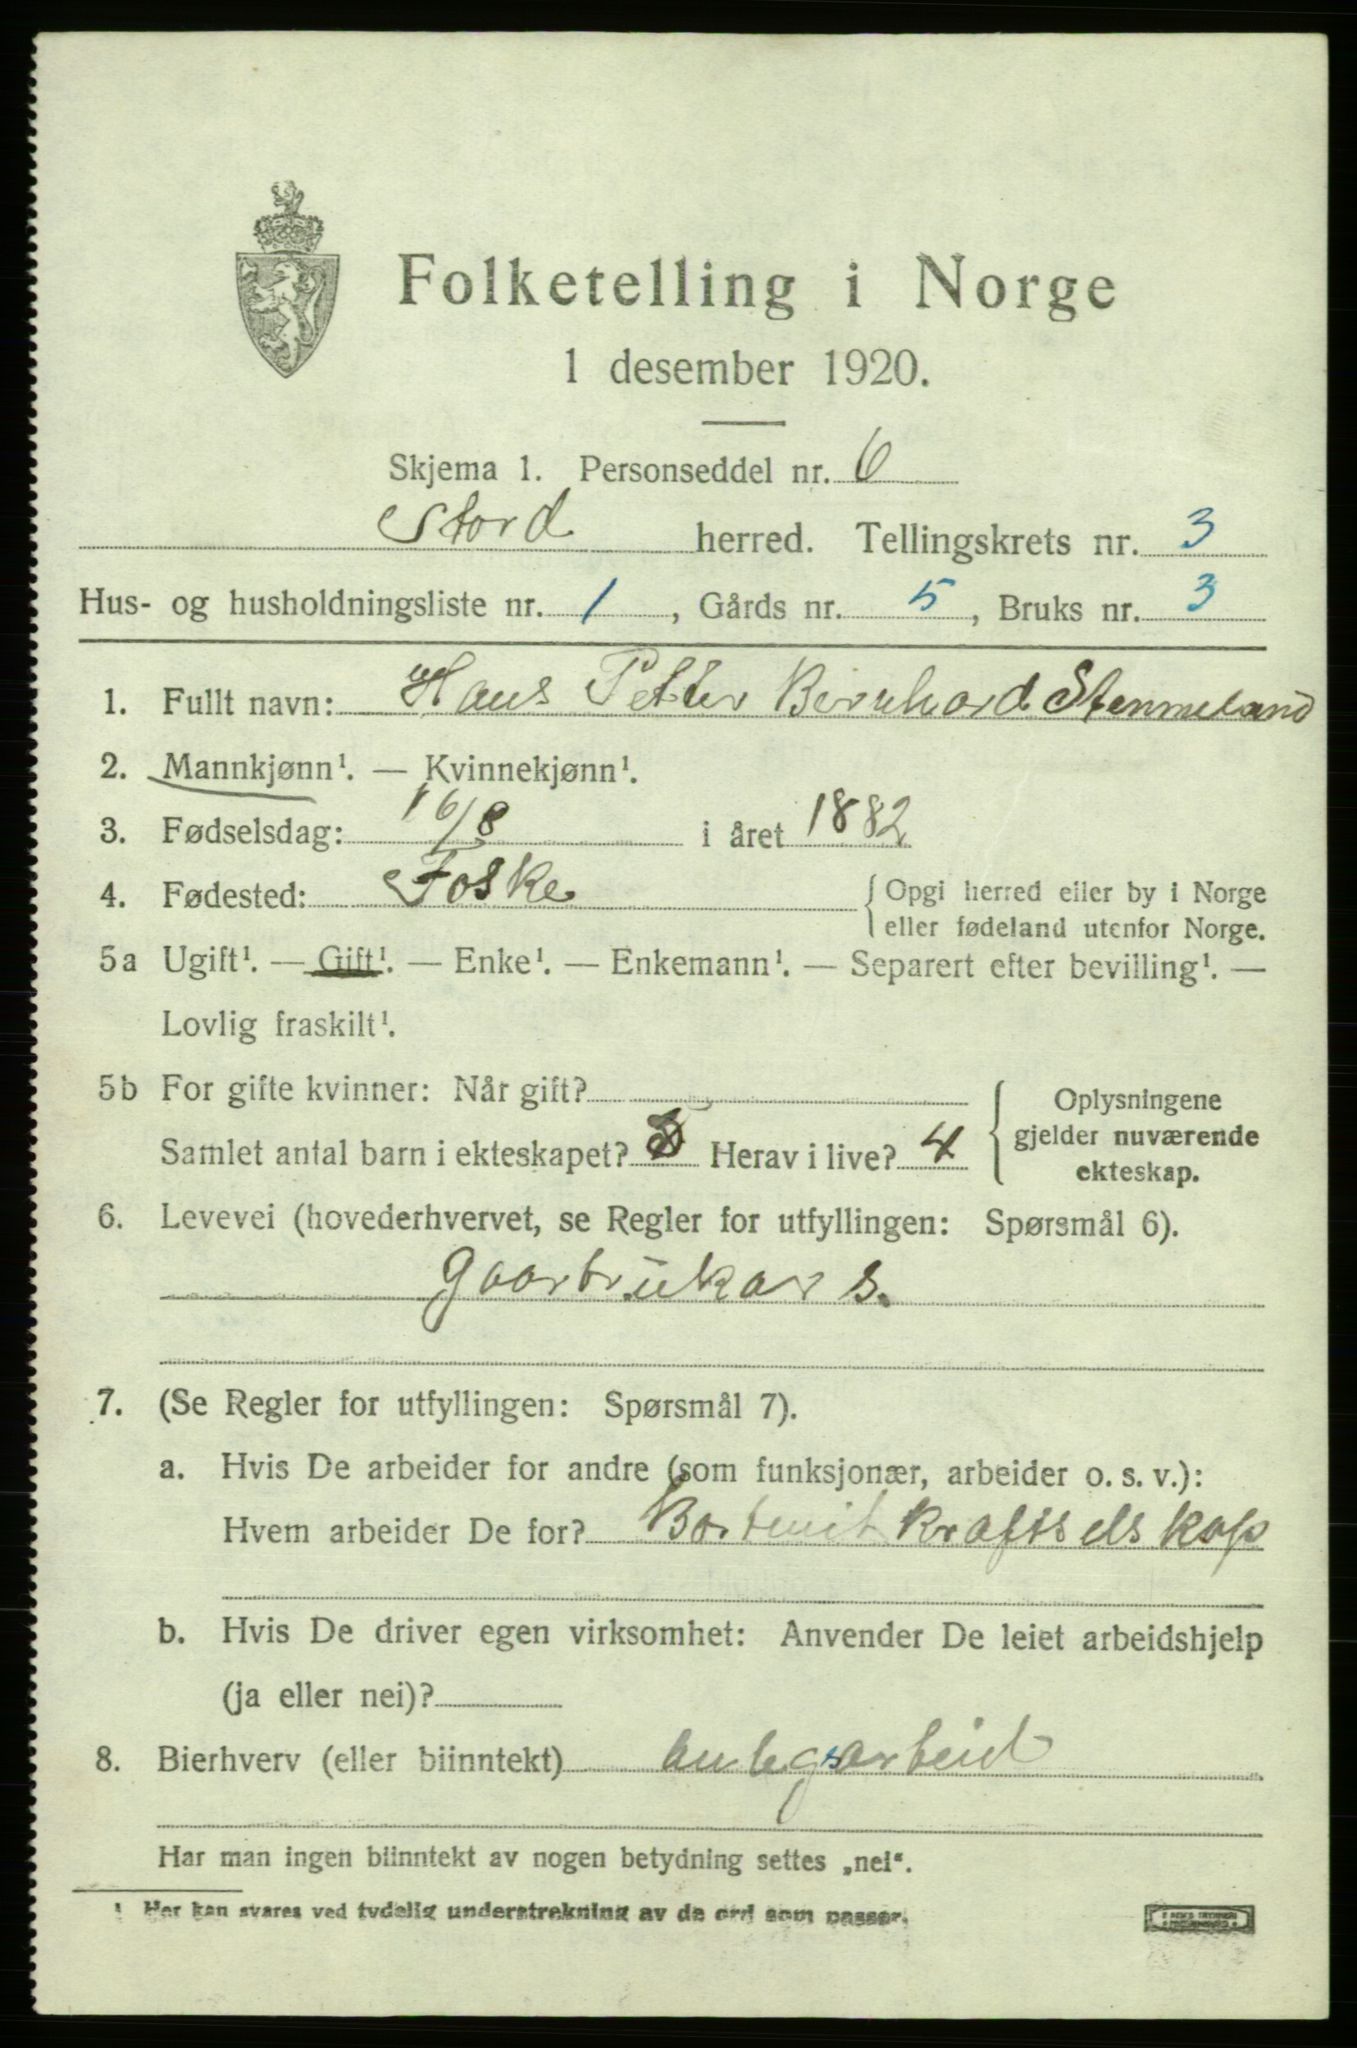 Folketelling i Norge
1 desember 1920.
Skjema 1. Personseddel nr. 6
Stord herred. Tellingskrets nr. 3
Hus- og husholdningsliste nr. 1, Gårds nr. 5, Bruks nr. 3
1. Fullt navn: Hans Petter Bernhard Stenmeland
2. Mannkjønn¹. — Kvinnekjønn¹.
3. Fødselsdag: 16/8 i året 1882
4. Fødested: Foske { Opgi herred eller by i Norge
eller fødeland utenfor Norge.
5a Ugift¹. — Gift¹. — Enke¹. — Enkemann¹. — Separert efter bevilling¹. —
Lovlig fraskilt¹.
5b For gifte kvinner: Når gift?
Samlet antal barn i ekteskapet? Herav i live? 4
{ Oplysningene
gjelder nuværende
ekteskap.
6. Levevei (hovederhvervet, se Regler for utfyllingen: Spørsmål 6).
Gaarbrukar s.
7. (Se Regler for utfyllingen: Spørsmål 7).
a. Hvis De arbeider for andre (som funksjonær, arbeider o. s. v.):
Hvem arbeider De for? kraftselskap
b. Hvis De driver egen virksomhet: Anvender De leiet arbeidshjelp
(ja eller nei)?
8. Bierhverv (eller biinntekt) anlegsarbeid
Har man ingen biinntekt av nogen betydning settes „nei“.
¹ Her kan svares ved tydelig understrekning av de ord som passer.